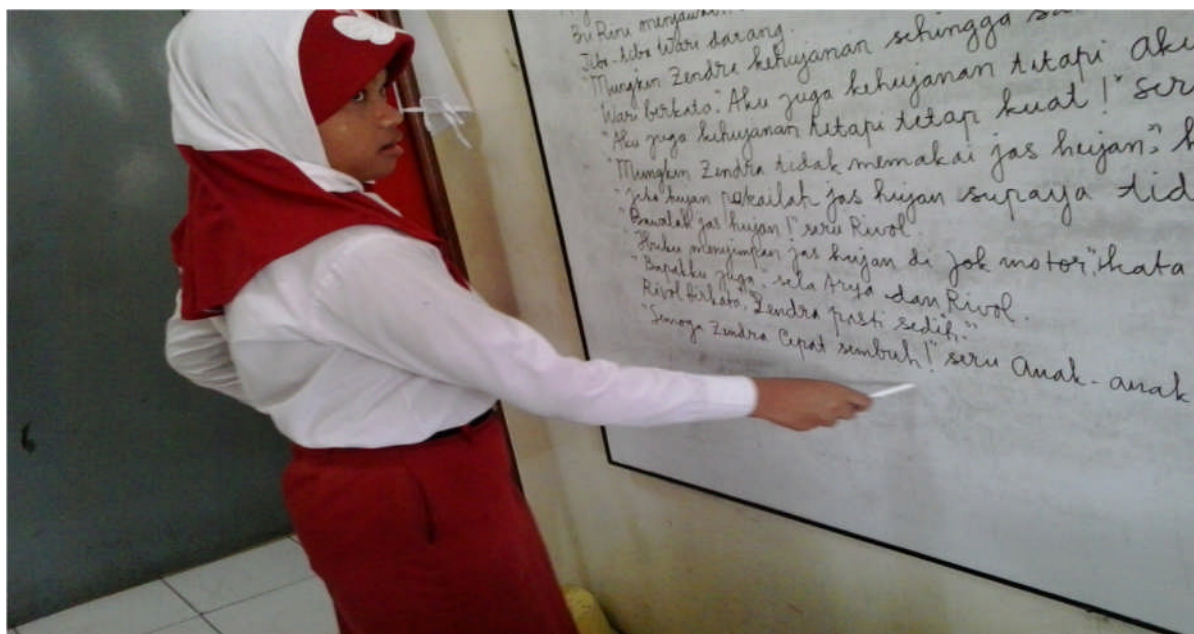 Bu Rini menjawab
Tiba-tiba Wari datang.
"Mungkin Zendra kehujanan sehingga
Wari berkata: "Aku juga kehujanan tetapi aku
"Aku juga kehujanan tetapi tetap kuat!" ser
"Mungkin Zendra tidak memakai jas hujan,"
"Jika hujan pakailah jas hujan supaya tid
"Bawalah jas hujan!" seru Rivol.
"Ibuku menyimpan jas hujan di jok motor," kata
"Bapakku juga", sela Arya dan Rivol.
Rivol berkata, "Zendra pasti sedih."
"Semoga Zendra Cepat sembuh!" seru Anak-anak